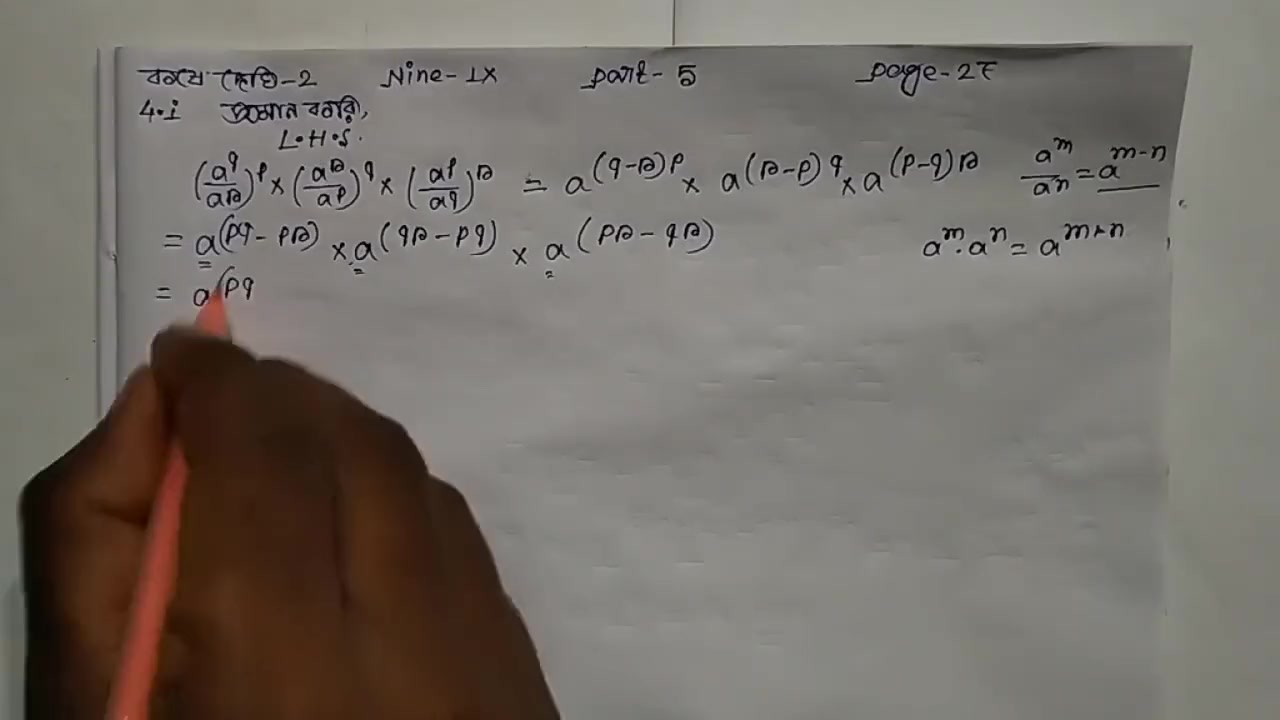 কষে দেখি-2 Nine-IX Part-5 Page-28
4.i প্রমাণ করি,
L.H.S.
(a^q/a^r)^p × (a^r/a^p)^q × (a^p/a^q)^r = a^(q-r)p × a^(r-p)q × a^(p-q)r a^m/a^n = a^m-n
= a^(pq-pr) × a^(qr-pq) × a^(pr-qr) a^m · a^n = a^m+n
= a^(pq